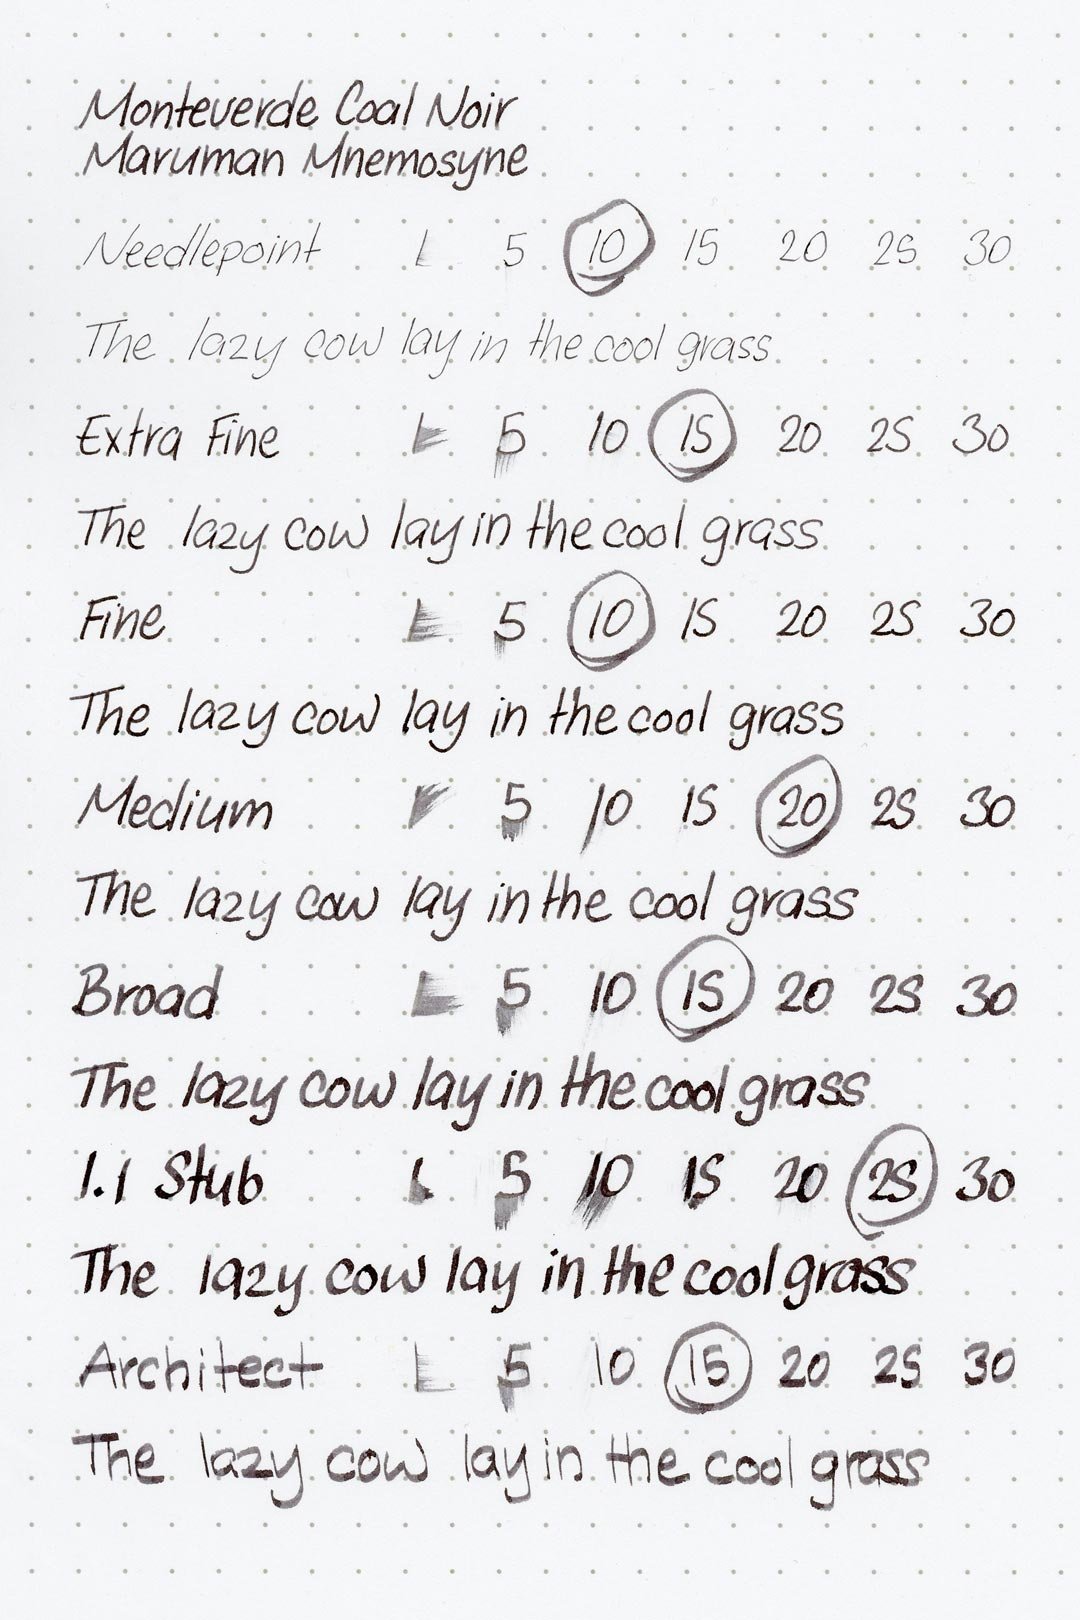 Monteverde Coal Noir
Maruman Mnemosyne
Needlepoint 1 5 10 15 20 25 30
The lazy cow lay in the cool grass
Extra Fine 1 5 10 15 20 25 30
The lazy cow lay in the cool grass
Fine 1 5 10 15 20 25 30
The lazy cow lay in the cool grass
Medium 1 5 10 15 20 25 30
The lazy cow lay in the cool grass
Broad 1 5 10 15 20 25 30
The lazy cow lay in the cool grass
1.1 Stub 1 5 10 15 20 25 30
The lazy cow lay in the cool grass
Architect 1 5 10 15 20 25 30
The lazy cow lay in the cool grass